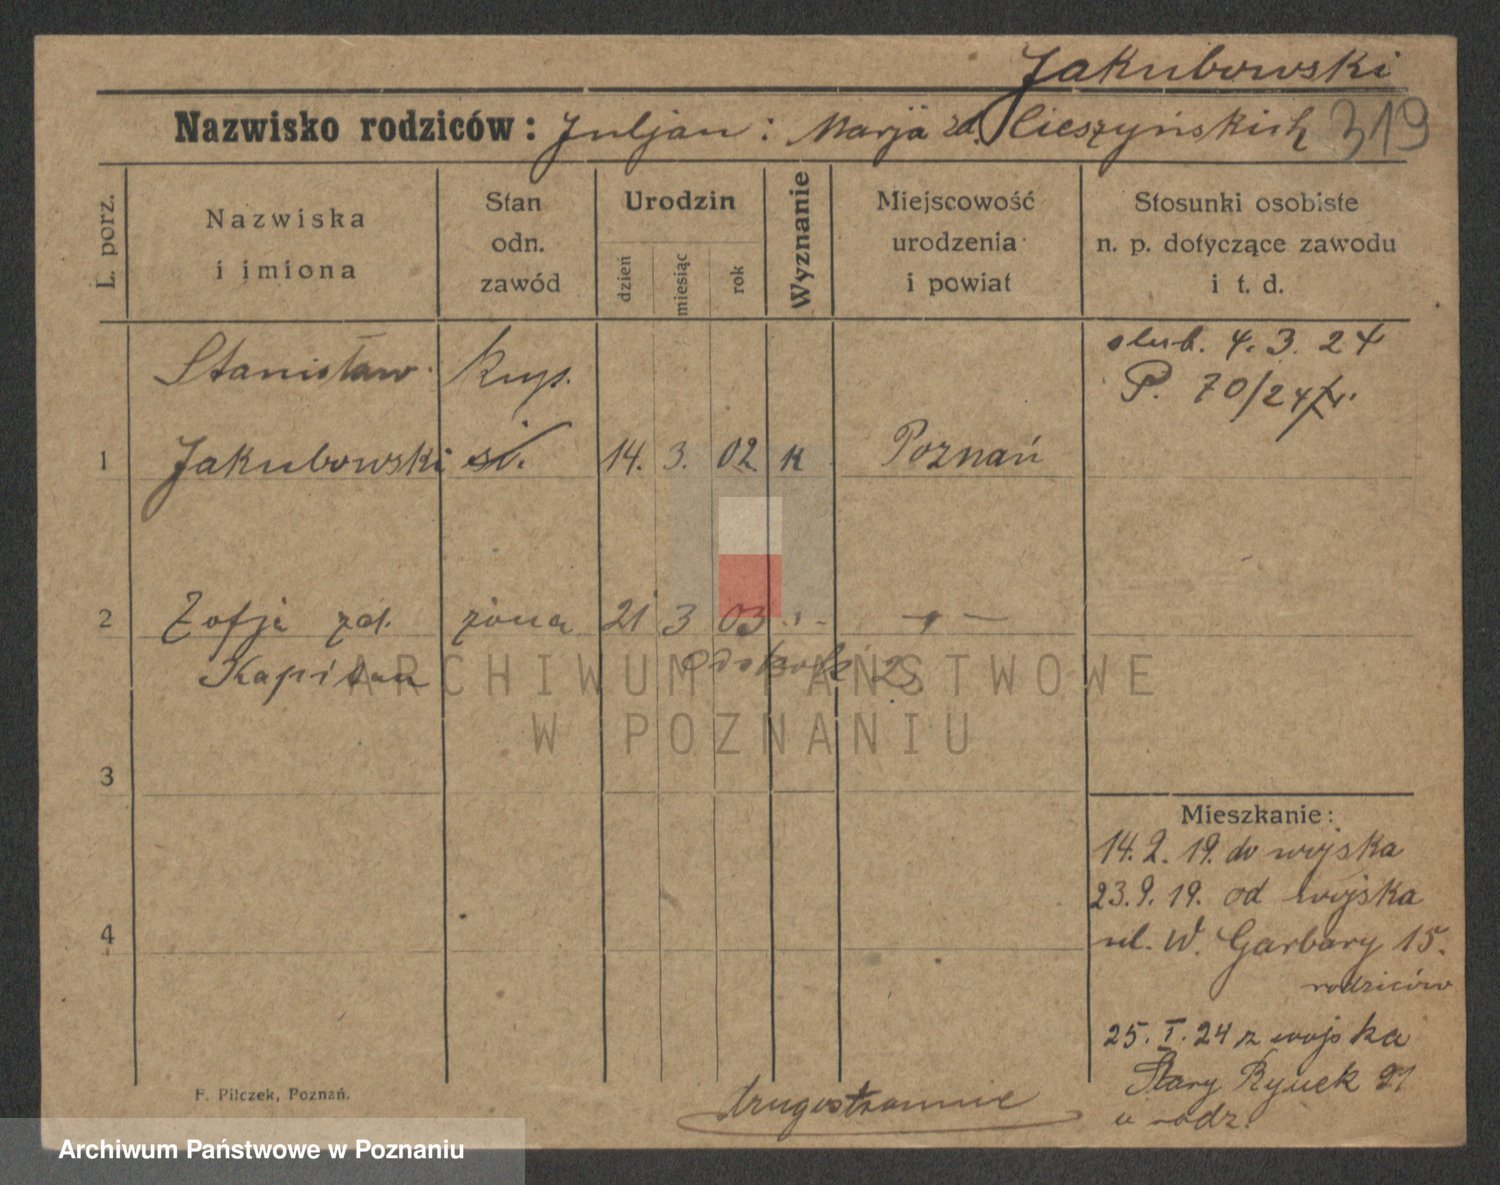 Jakubowski
Nazwisko rodziców: Juljan: Marja zd. Cieszyńskich 319
L. porz.
Nazwiska
i imiona
Stan
odn.
zawód
Urodzin
dzień
miesiąc
rok
Wyznanie
Miejscowość
urodzenia
i powiat
Stosunki osobiste
n. p. dotyczące zawodu
i t. d.
Stanisław kup. ślub. 4. 3. 24
P. 70/24
1 Jakubowski st. 14. 3. 02 K Poznań
2 Zofja zd. żona 21 3 03 -"- -"-
Kapitan
ARCHIWUM PAŃSTWOWE
W POZNANIU
3
4
Mieszkanie:
14. 2. 19. do wojska
23. 9. 19. od wojska
ul. W. Garbary 15.
rodziców
25. I. 24 z wojska
Stary Rynek 91
u rodz.
drugostronnie
F. Pilczek, Poznań.
Archiwum Państwowe w Poznaniu